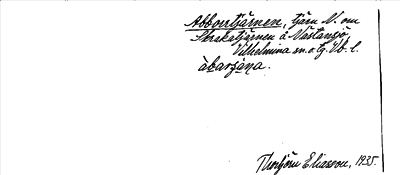 Abborrtjärnen, tjärn N. om
Skrakatjärnen å Nästansjö,
Vilhelmina sn. o. tg. Vb. l.
àbarʂàna.
Torbjörn Eliasson, 1935.